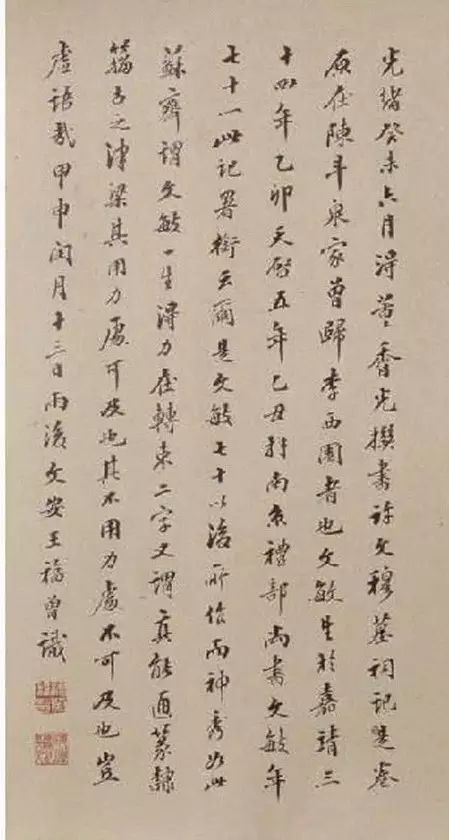 光緒癸未六月得董香光撰書許文穆墓祠記是卷
原在陳斗泉家曾歸李西園者也文敏生於嘉靖三
十四年乙卯天啟五年乙丑拜南京禮部尚書文敏年
七十一此記署銜云爾是文敏七十以後所作而神秀如此
蘇齋謂文敏一生得力在轉束二字又謂真能通篆隸
籀古之津梁其用力處可及也其不用力處不可及也豈
虛語哉甲申閏月十三日雨後文安王福曾識